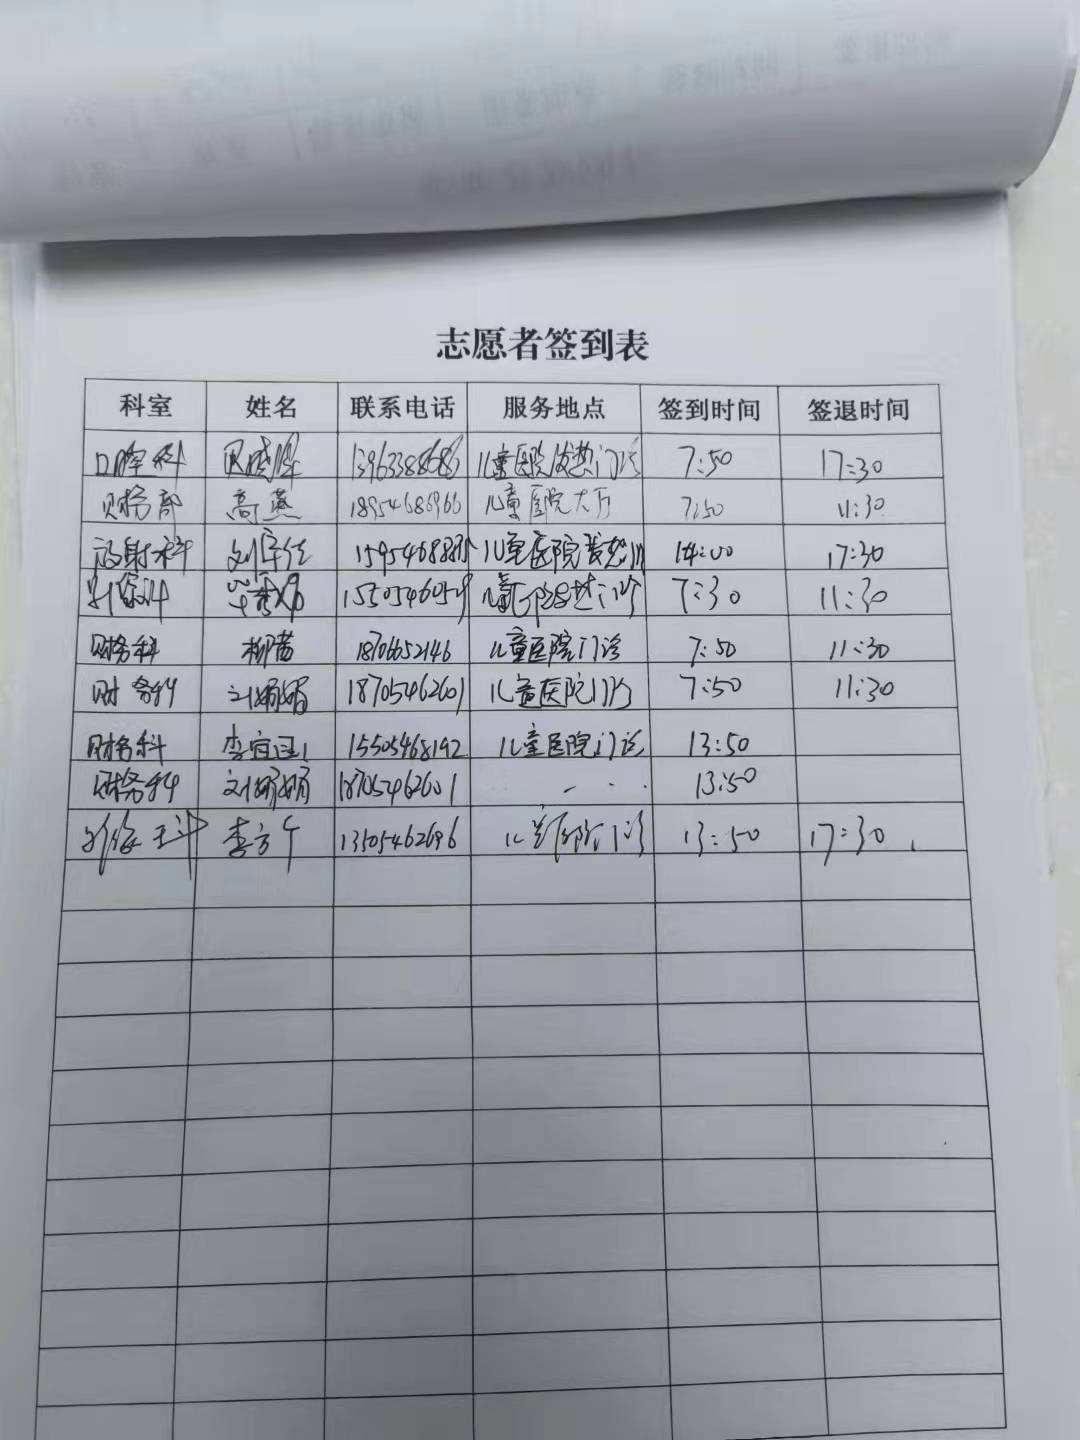 志愿者签到表
科室 姓名 联系电话 服务地点 签到时间 签退时间
口腔科 13963388683 儿童医院发热门诊 7:50 17:30
财务部 高燕 18954686966 儿童医院大厅 7:50 11:30
放射科 儿童医院发热门 14:00 17:30
7:30 11:30
财务科 柳蕾 18706652146 儿童医院门诊 7:50 11:30
财务科 刘娟娟 18705462601 儿童医院门诊 7:50 11:30
财务科 李宜 15505468192 儿童医院门诊 13:50
财务科 刘娟娟 18705462601 13:50
科 李方 13505462696 儿童医院门诊 13:50 17:30